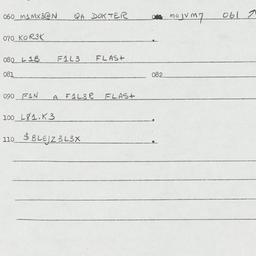 050 M1MX3@N QA DOKTER mojvm7 061
070 KOR3K
080 L1B F1L3 FLAS+
081 082
090 F1N A F1L3R FLAS+
100 L81.K3
110 $8LEJZ3L3X